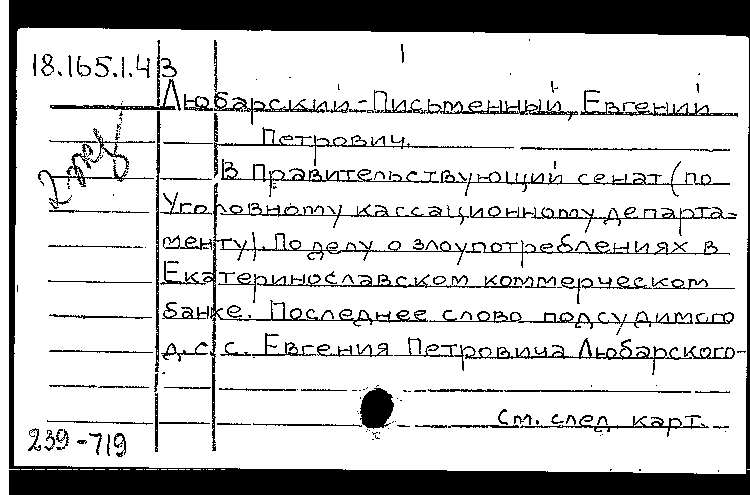 18.165.1.43
Любарский-Письменный, Евгений
Петрович.
В Правительствующий сенат (по
Уголовному кассационному департа-
менту). По делу о злоупотреблениях в
Екатеринославском коммерческом
банке. Последнее слово подсудимого
д.с.с. Евгения Петровича Любарского-
См. след. карт.
239-719